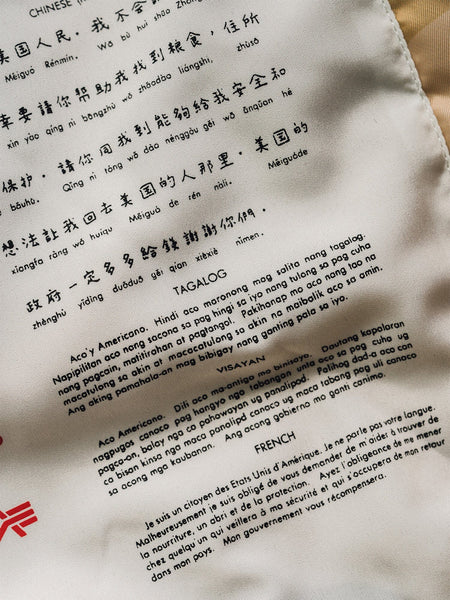 CHINESE
美国人民．我不会
Měiguó Rénmín. Wǒ bù huì shuō
幸要請你幇助我找到粮食，住所
xìn yào qǐng nǐ bāngzhù wǒ zhǎodào liángshí, zhùsǔ
保护．請你同我到能夠給我安全和
bǎuhù. Qǐng nǐ tóng wǒ dào nénggòu gěi wǒ ānquán hé
想法让我回去美国的人那里．美国的
xiǎngfǎ ràng wǒ huíqu Měiguó de rén nàlì. Měiguóde
政府一定多多給錢謝謝你們．
zhènghǔ yídìng duōduō gěi qian xièxiè nǐmen.
TAGALOG
Aco'y Americano. Hindi aco maronong mag salita nang tagalog.
Napipilitan aco nang sacona sa pag hingi sa iyo nang tulong sa pag cuha
nang pagcain, matitirahan at pagtangol. Pakihanap mo aco nang tao na
macatulong sa akin at macacatulong sa akin na maibalik aco sa amin.
Ang aking pamahala-an mag bibigay nang ganting pala sa iyo.
VISAYAN
Aco Americano. Dili aco ma-antigo mo binisaya. Dautang kapalaran
nagpugos canaco pag hangyo nga tabangan unta aco sa pag cuha ug
pagca-on, balay nga ca pahowayan ug panalipod. Palihog dad-a aco con
ca bisan kinsa nga maca panalipod canaco ug maca tabang pag uli canaco
sa acong mga kaubanan. Ang acong gobierno mo ganti canimo.
FRENCH
Je suis un citoyen des Etats Unis d'Amérique. Je ne parle pas votre langue.
Malheureusement je suis obligé de vous demander de m'aider à trouver de
la nourriture, un abri et de la protection. Ayez l'obligeance de me mener
chez quelqu'un qui veillera à ma sécurité et qui s'occupera de mon retour
dans mon pays. Mon gouvernement vous récompensera.